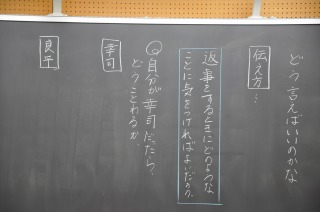 どう言えばいいのかな
伝え方…
返事をするときにどのような
ことに気をつければよいだろうか。
Q自分が幸司だったら、
どうことわるか
幸司
良平